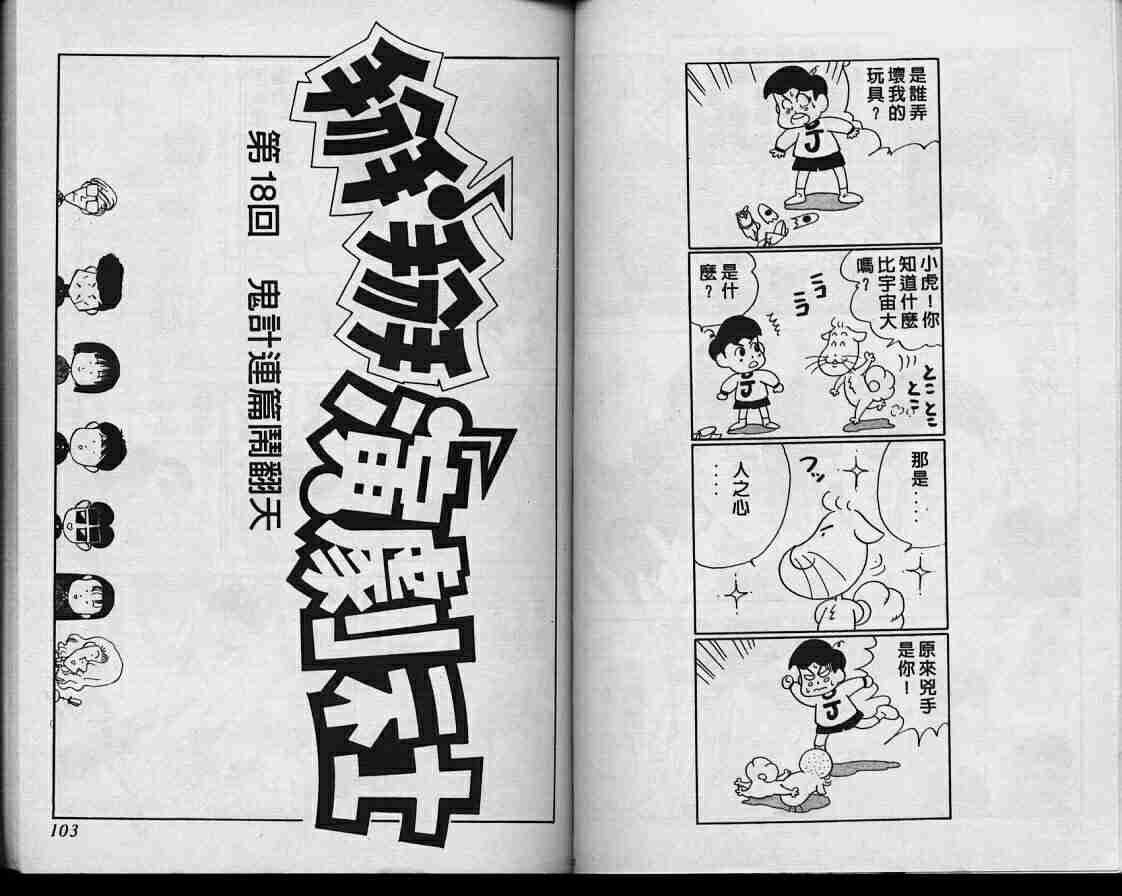 是誰弄
壞我的
玩具？
小虎！你
知道什麼
比宇宙大
嗎？
とこ
とこ
とこ
ニコ
ニコ
是什
麼？
那是‥‥
フッ
人之心
‥‥
原來兇手
是你！
演劇社
第18回　鬼計連篇鬧翻天
103